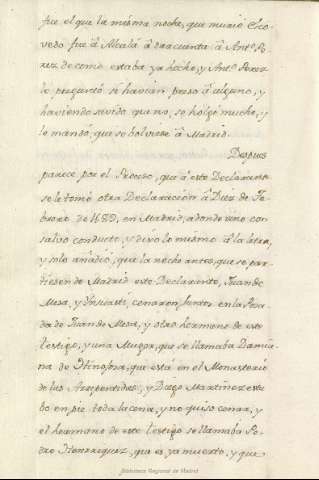 fue el que la misma noche, que murió Esco-
vedo fue â Alcalá â dar cuenta â Antº Pe-
rez de como estaba ya hecho, y Antº Perez
le preguntó si havian preso â alguno, y
haviendo savido que no, se holgó mucho, y
le mandó, que se bolviese â Madrid.
Despues
parece por el Proceso, que â este Declarante
se le tomó otra Declaración â Diez de Fe-
brero de en Madrid, adonde vino con
salvo conducto, y dixo lo mismo â la letra,
y solo añadió, que la noche antes, que se par-
tiesen de Madrid este Declarante, Juan de
Mesa, y Ynsausti, cenaron juntos en la Posa-
da de Juan de Mesa, y otro hermano de este
testigo, y una Muger, que se llamaba Damia-
na de que está en el Monasterio
de las Arrepentidas, y Diego Martinez estu-
bo en pie toda la cena, y no quiso cenar, y
el hermano de este testigo se llamaba Pe-
dro Henrriquez, que es ya muerto, y que
Biblioteca Regional de Madrid